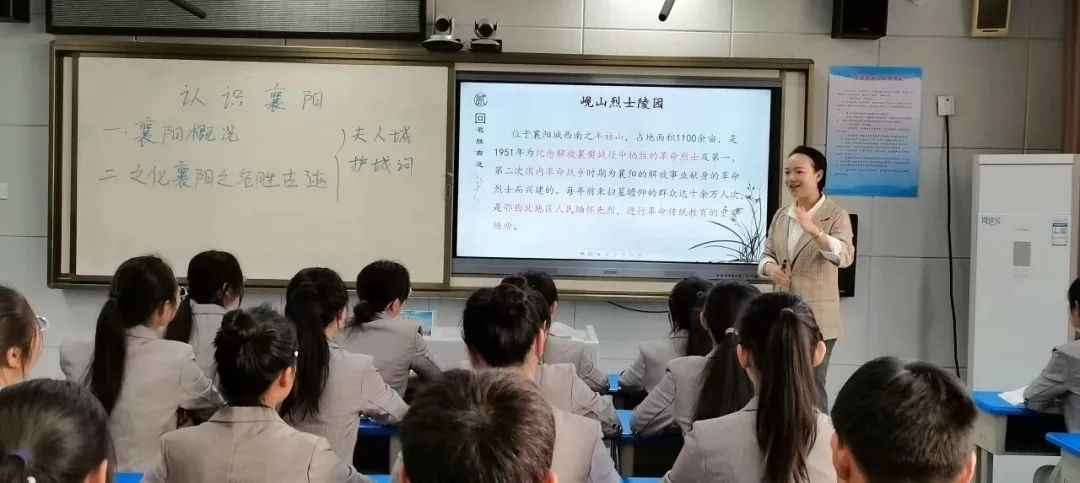 认识襄阳
一、襄阳概况
二、文化襄阳之名胜古迹
夫人城
护城河
贰
回
名胜古迹
岘山烈士陵园
位于襄阳城西南之羊祜山，占地面积1100余亩，是
1951年为纪念解放襄樊战役中牺牲的革命烈士及第一、
第二次国内革命战争时期为襄阳的解放事业献身的革命
烈士而兴建的。每年前来扫墓瞻仰的群众达十余万人次，
是鄂西北地区人民缅怀先烈，进行革命传统教育的重要
场所。